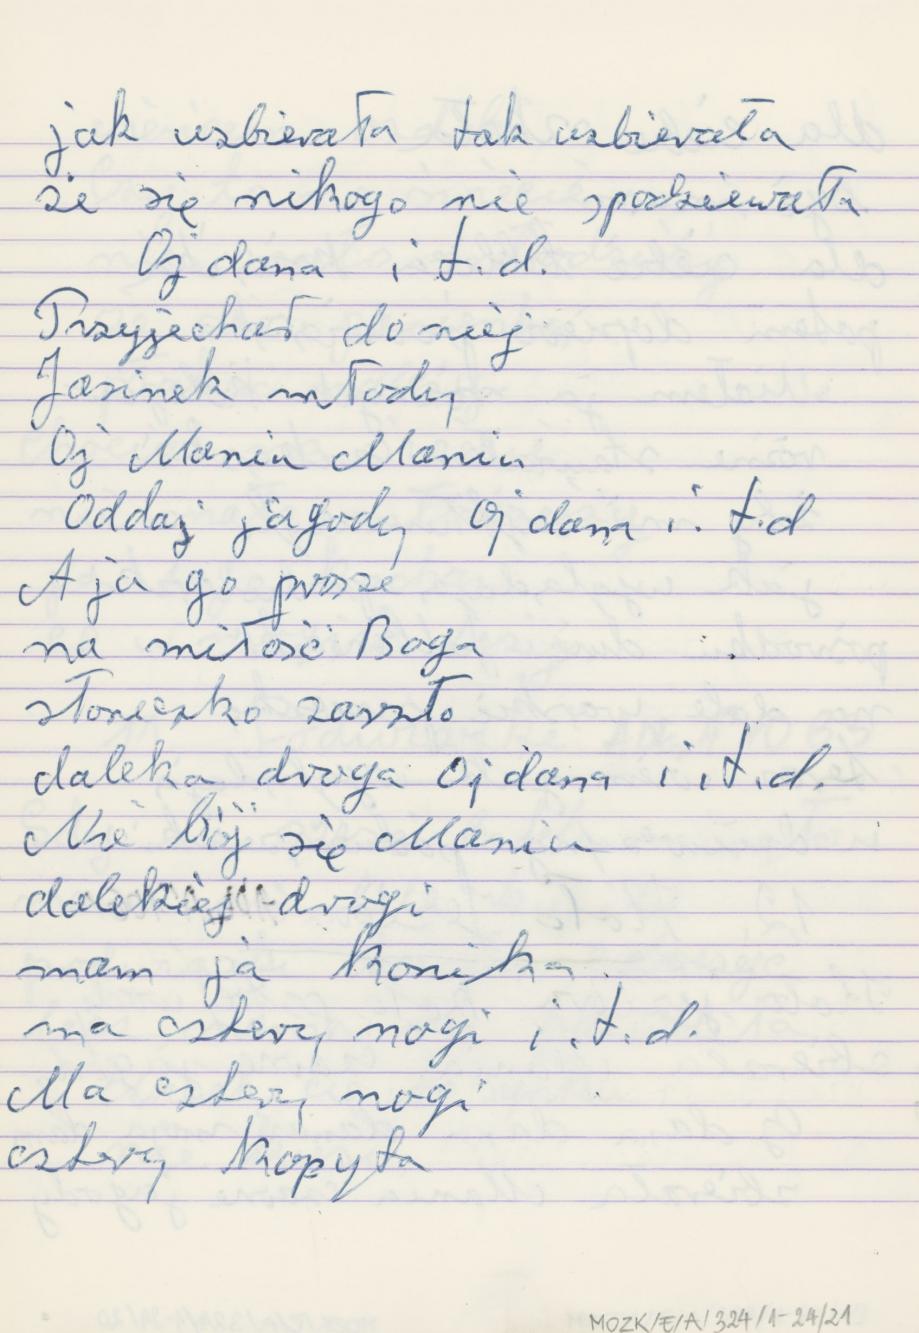 jak uzbierała tak uzbierała
że się nikogo nie spodziewała
Oj dana i t.d.
Przyjechał do niej
Jasinek młody
Oj Maniu Maniu
Oddaj jagody Oj dana i. t.d
A ja go prosze
na miłość Boga
słoneczko zaszło
daleka droga Oj dana i.t.d.
Nie bój się Maniu
dalekiej drogi
mam ja konika
ma cztery nogi i.t.d.
Ma cztery nogi
cztery kopyta
MOZK/E/A/324/1-24/21